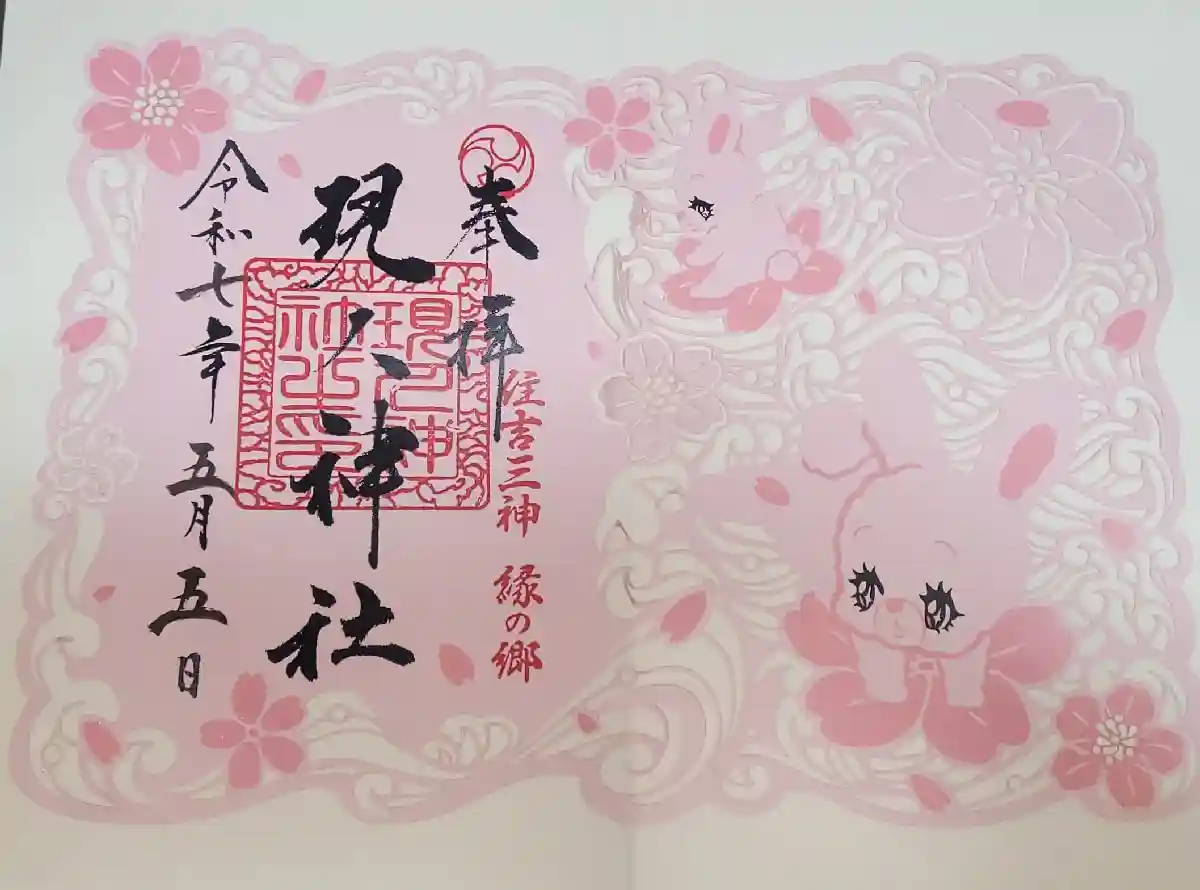 奉拝
住吉三神 縁の郷
現人神社
現人神
社之印
令和七年五月五日